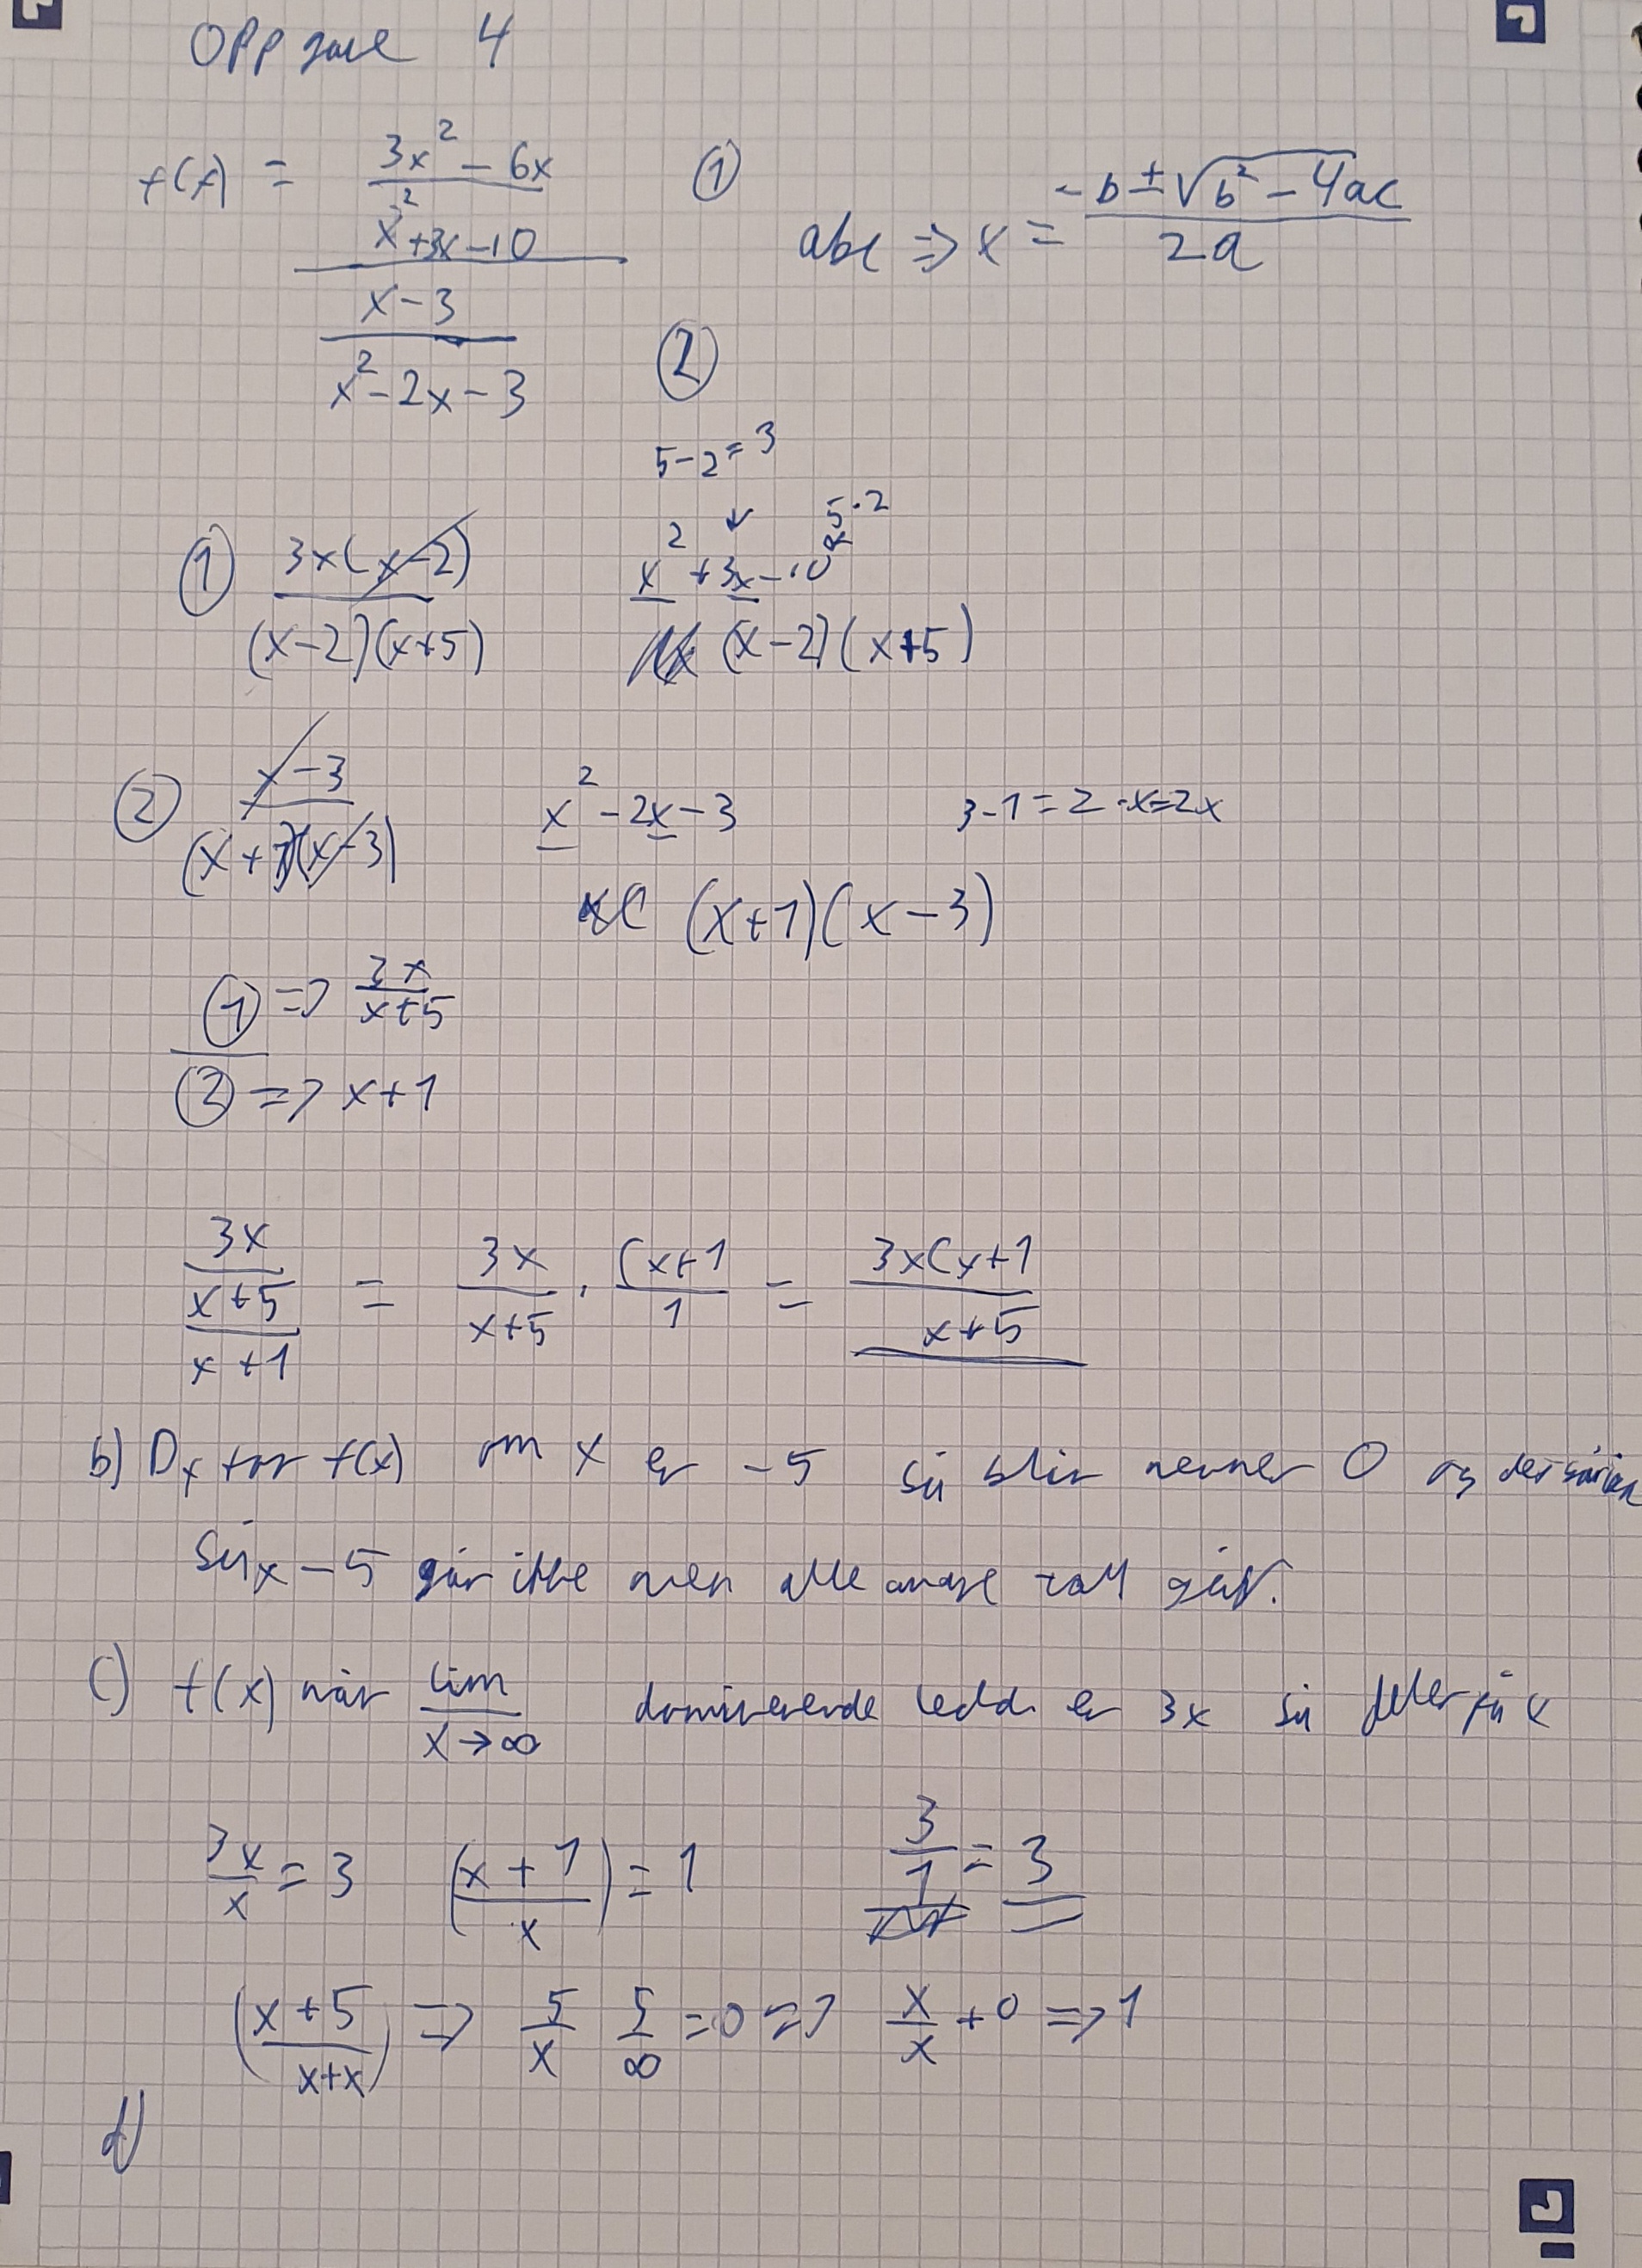 Oppgave 4
f(x) = \frac{\frac{3x^2 - 6x}{x^2 + 3x - 10}}{\frac{x - 3}{x^2 - 2x - 3}}
① abc => x = \frac{-b ± \sqrt{b^2 - 4ac}}{2a}
②
5-2=3
5·2
x^2 + 3x - 10
(x-2)(x+5)
① \frac{3x(x-2)}{(x-2)(x+5)}
② \frac{x-3}{(x+1)(x-3)}
x^2 - 2x - 3
3-1=2·x=2x
(x+1)(x-3)
① => \frac{3x}{x+5}
② => x+1
\frac{\frac{3x}{x+5}}{x+1} = \frac{3x}{x+5} · \frac{(x+1}{1} = \frac{3x(x+1}{x+5}
b) Dx for f(x) om x er -5 så blir nevner 0 og det
så x -5 går ikke men alle andre tall går.
c) f(x) når \frac{lim}{x→∞} dominerende ledd er 3x så deler på x
\frac{3x}{x} = 3 (\frac{x+1}{x}) = 1 \frac{3}{1} = 3
(\frac{x+5}{x+x}) => \frac{5}{x} \frac{5}{∞} = 0 => \frac{x}{x} + 0 => 1
d)